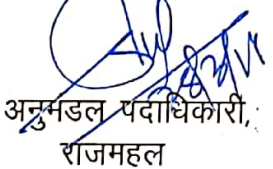 अनुमंडल पदाधिकारी,
राजमहल